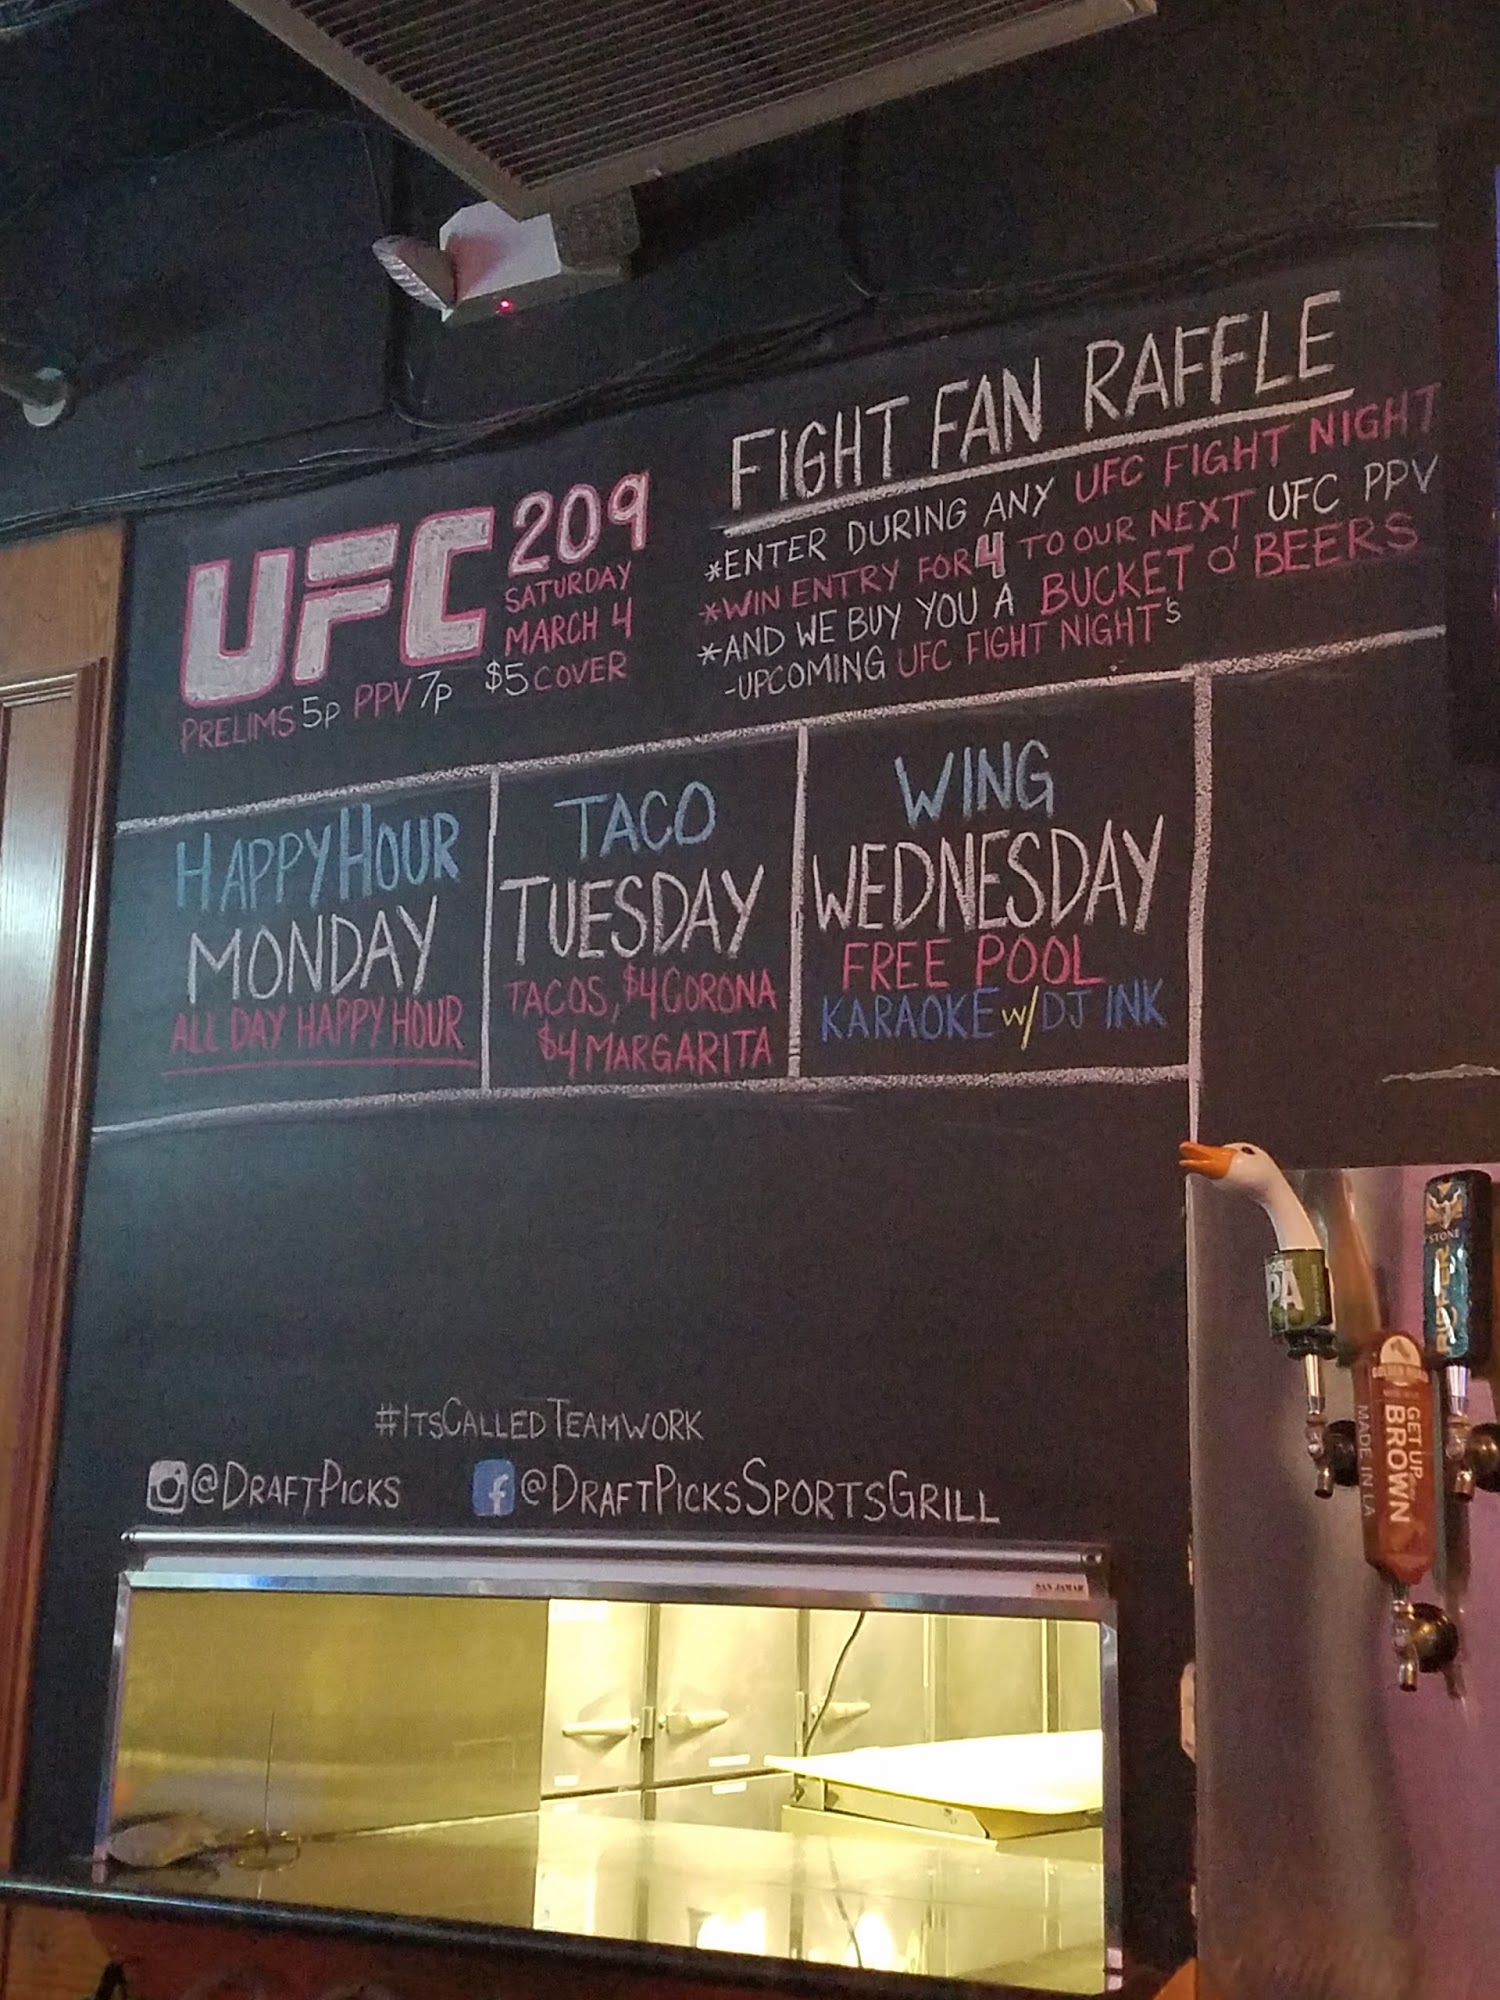 UFC 209
SATURDAY
MARCH 4
PRELIMS 5P PPV 7P $5 COVER
FIGHT FAN RAFFLE
*ENTER DURING ANY UFC FIGHT NIGHT
*WIN ENTRY FOR 4 TO OUR NEXT UFC PPV
*AND WE BUY YOU A BUCKET O' BEERS
-UPCOMING UFC FIGHT NIGHT'S
HAPPY HOUR
MONDAY
ALL DAY HAPPY HOUR
TACO
TUESDAY
TACOS, $4 CORONA
$4 MARGARITA
WING
WEDNESDAY
FREE POOL
KARAOKE W/ DJ INK
#ITSCALLEDTEAMWORK
@DRAFTPICKS
f @DRAFTPICKSSPORTSGRILL
SAN JAMAR
PA
STONE
RIPPER
GET UP
BROWN
MADE IN LA